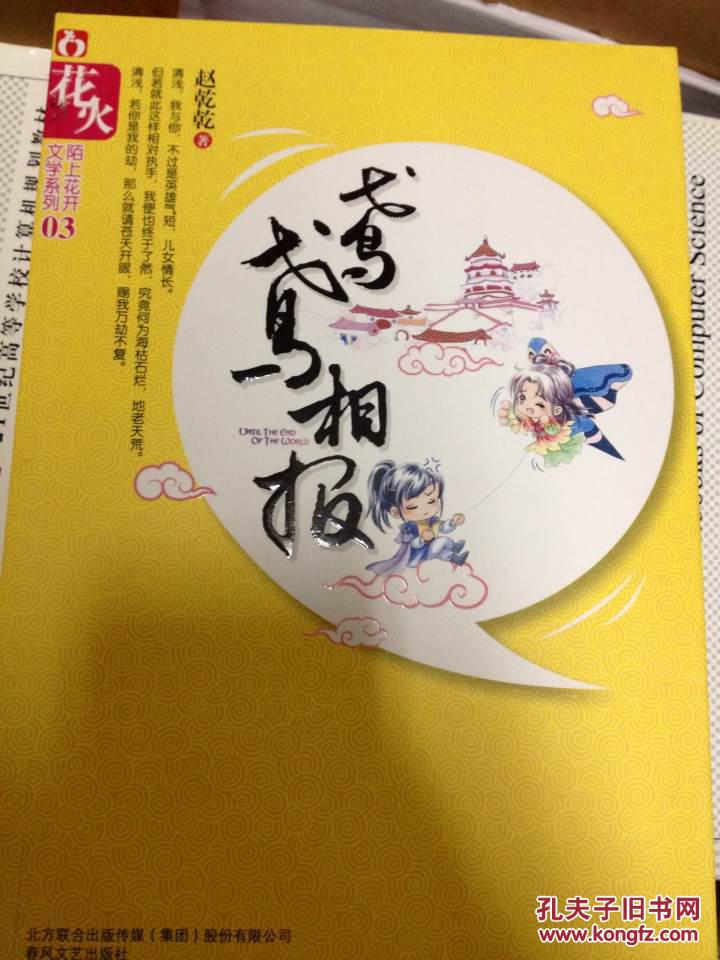 花火
陌上花开
文学系列 03
赵乾乾 著
清浅，我与你，不过是英雄气短，儿女情长。
但若就此这样相对执手，我便也终于了然，究竟何为海枯石烂，地老天荒。
清浅，若你是我的劫，那么就请苍天开眼，赐我万劫不复。
鸢鸢相报
UNTIL THE END
OF THE WORLD
北方联合出版传媒（集团）股份有限公司
春风文艺出版社
世纪高等学校计算机规划教材
of Computer Science
孔夫子旧书网
www.kongfz.com